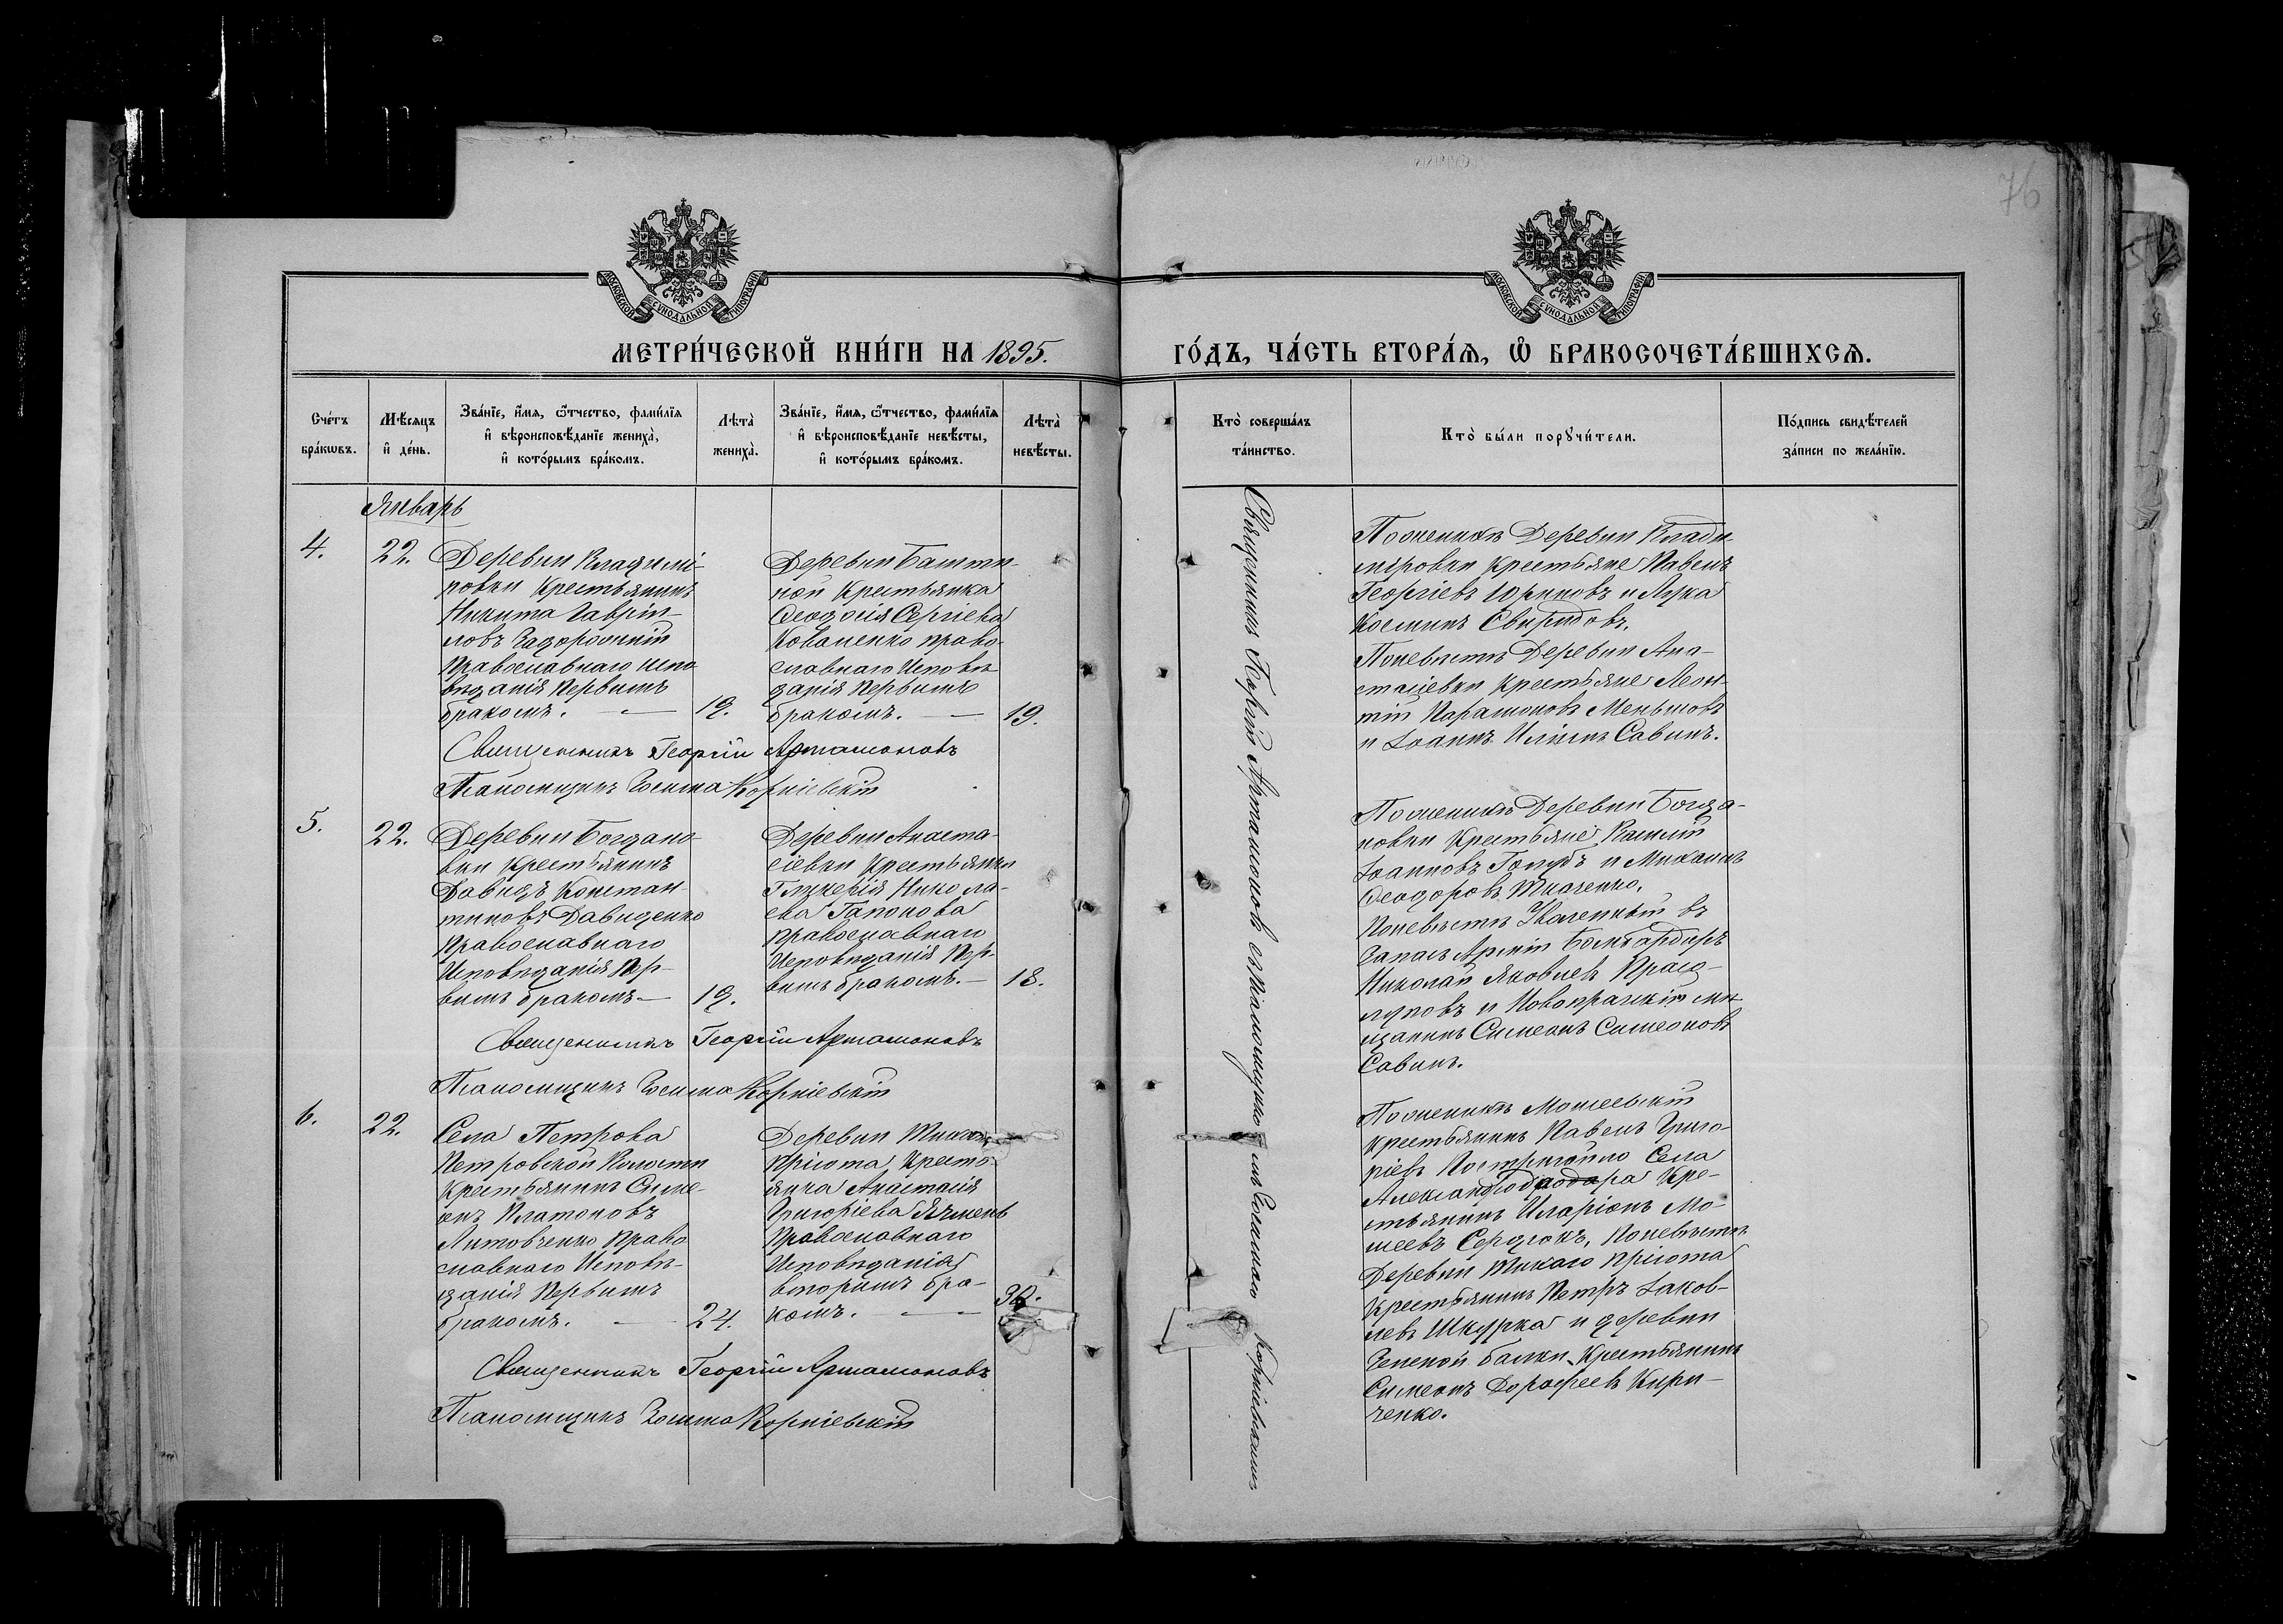 76
МОСКОВСКОЙ СѴНОДАЛЬНОЙ ТИПОГРАФІИ
МОСКОВСКОЙ СѴНОДАЛЬНОЙ ТИПОГРАФІИ
МЕТРИ́ЧЕСКОЙ КНИ́ГИ НА 1895. ГО́ДЪ, ЧА́СТЬ ВТОРА́Ѧ, Ѡ҆ БРАКОСОЧЕТА́ВШИХСѦ.
Сче́тъ
бра́кѡвъ.
Мѣ́сяцъ
и҆ де́нь.
Зва́нїе, и҆́мѧ, ѻ҆́тчество, фами́лїѧ
и҆ вѣроисповѣ́данїе жениха̀,
и҆ кото́рымъ бра́комъ.
Лѣта̀
жениха̀.
Зва́нїе, и҆́мѧ, ѻ҆́тчество, фами́лїѧ
и҆ вѣроисповѣ́данїе невѣ́сты,
и҆ кото́рымъ бра́комъ.
Лѣта̀
невѣ́сты.
Кто̀ соверша́лъ
та́инство.
Кто̀ бы́ли порꙋчи́тели.
По́дпись свидѣ́телей
за́писи по жела́нїю.
Январь
4.
22.
Деревни Владимі-
ровки Крестьянинъ
Никита Гаврии-
ловъ Задорожній
Православнаго испо
вѣданія Первымъ
бракомъ. —
19.
Деревни Башти-
ной Крестьянка
Ѳеодосія Сергіева
Коваленко право-
славнаго Исповѣ
данія Первымъ
бракомъ. —
19.
Священникъ Георгій Артамоновъ
Псаломщикъ Зосима Корніевскій
Поженихѣ Деревни Влади-
міровки крестьяне Павелъ
Георгіевъ Юриновъ и Лука
Косминъ Свиридовъ.
Поневѣстѣ Деревни Ана-
стасіевки крестьяне Леон-
тій Парамоновъ Меньшовъ
и Іоаннъ Иліинъ Савинъ.
5.
22.
Деревни Богдано-
вки Крестьянинъ
Давидъ Констан-
тиновъ Давиденко
Православнаго
Исповѣданія Пер-
вымъ бракомъ —
19.
Деревни Анаста-
сіевки Крестьянка
Гликерія Никола-
ева Гапонова
православнаго
Исповѣданія Пер-
вымъ бракомъ. —
18.
Священникъ Георгій Артамоновъ
Псаломщикъ Зосима Корніевскій
Поженихѣ Деревни Богда-
новки Крестьяне
Іоанновъ Голубъ и Михаилъ
Ѳеодоровъ Ткаченко,
Поневѣстѣ Уволенный въ
Запасъ Арміи Бомбардиръ
Николай Яковлевъ
и Новопражскій мѣ-
щанинъ Симеонъ Симеоновъ
Савинъ.
6.
22.
Села Петрова
Петровской Волости
Крестьянинъ Симе-
онъ Платоновъ
Литовченко Право
славнаго Исповѣ-
данія Первымъ
бракомъ. —
24.
Деревни Тихаго
Пріюта, Кресть-
янка Анастасія
Григоріева Ячмень
Православнаго
Исповѣданія
вторымъ бра-
комъ. —
30.
Священникъ Георгій Артамоновъ
Псаломщикъ Зосима Корніевскій
Поженихѣ
крестьянинъ Павелъ Григо-
ріевъ Села
Кре-
стьянинъ Иларіонъ Мо-
исеевъ Сердюкъ, Поневѣстѣ
Деревни Тихаго Пріюта
Крестьянинъ Петръ Іаков-
левъ Шкурка и деревни
Зеленой балки Крестьянинъ
Симеонъ Дорофеевъ Кири-
ченко.
Священникъ Георгій Артамоновъ съ Псаломщикомъ Зосимою Корніевскимъ